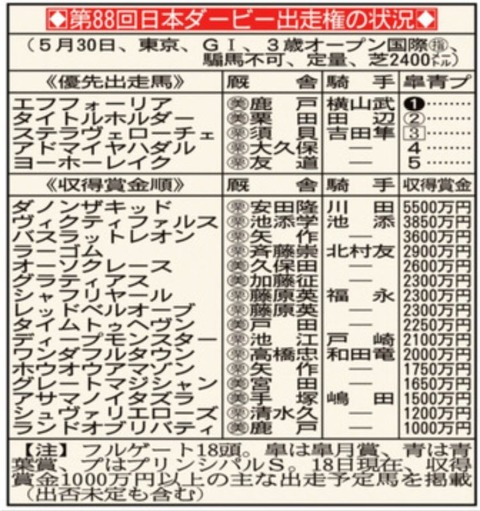 ◆第88回日本ダービー出走権の状況◆
(5月30日、東京、GI、3歳オープン国際㊩、
騸馬不可、定量、芝2400㍍)
《優先出走馬》 厩舎 騎手 皐青プ
エフフォーリア ㊤鹿戸 横山武 ❶………
タイトルホルダー ㊤栗田 田辺 ②………
ステラヴェローチェ ㊤須貝 吉田隼 3………
アドマイヤハダル ㊤大久保 ― 4………
ヨーホーレイク ㊤友道 ― 5………
《収得賞金順》 厩舎 騎手 収得賞金
ダノンザキッド 安田隆 川田 5500万円
ヴィクティファルス 池添学 池添 3850万円
バスラットレオン 矢作 ― 3600万円
ラーゴム 斉藤崇 北村友 2900万円
オーソクレース 久保田 ― 2600万円
グラティアス 加藤征 ― 2300万円
シャフリヤール 藤原英 福永 2300万円
レッドベルオーブ 藤原英 ― 2300万円
タイムトゥヘヴン 戸田 ― 2250万円
ディープモンスター 池江 戸崎 2100万円
ワンダフルタウン 高橋忠 和田竜 2000万円
ホウオウアマゾン 矢作 ― 1750万円
グレートマジシャン 宮田 ― 1650万円
アサマノイタズラ 手塚 嶋田 1500万円
シュヴァリエローズ 清水久 ― 1200万円
ランドオブリバティ 鹿戸 ― 1000万円
【注】フルゲート18頭。皐は皐月賞、青は青
葉賞、プはプリンシパルS。18日現在、収得
賞金1000万円以上の主な出走予定馬を掲載
(出否未定も含む)